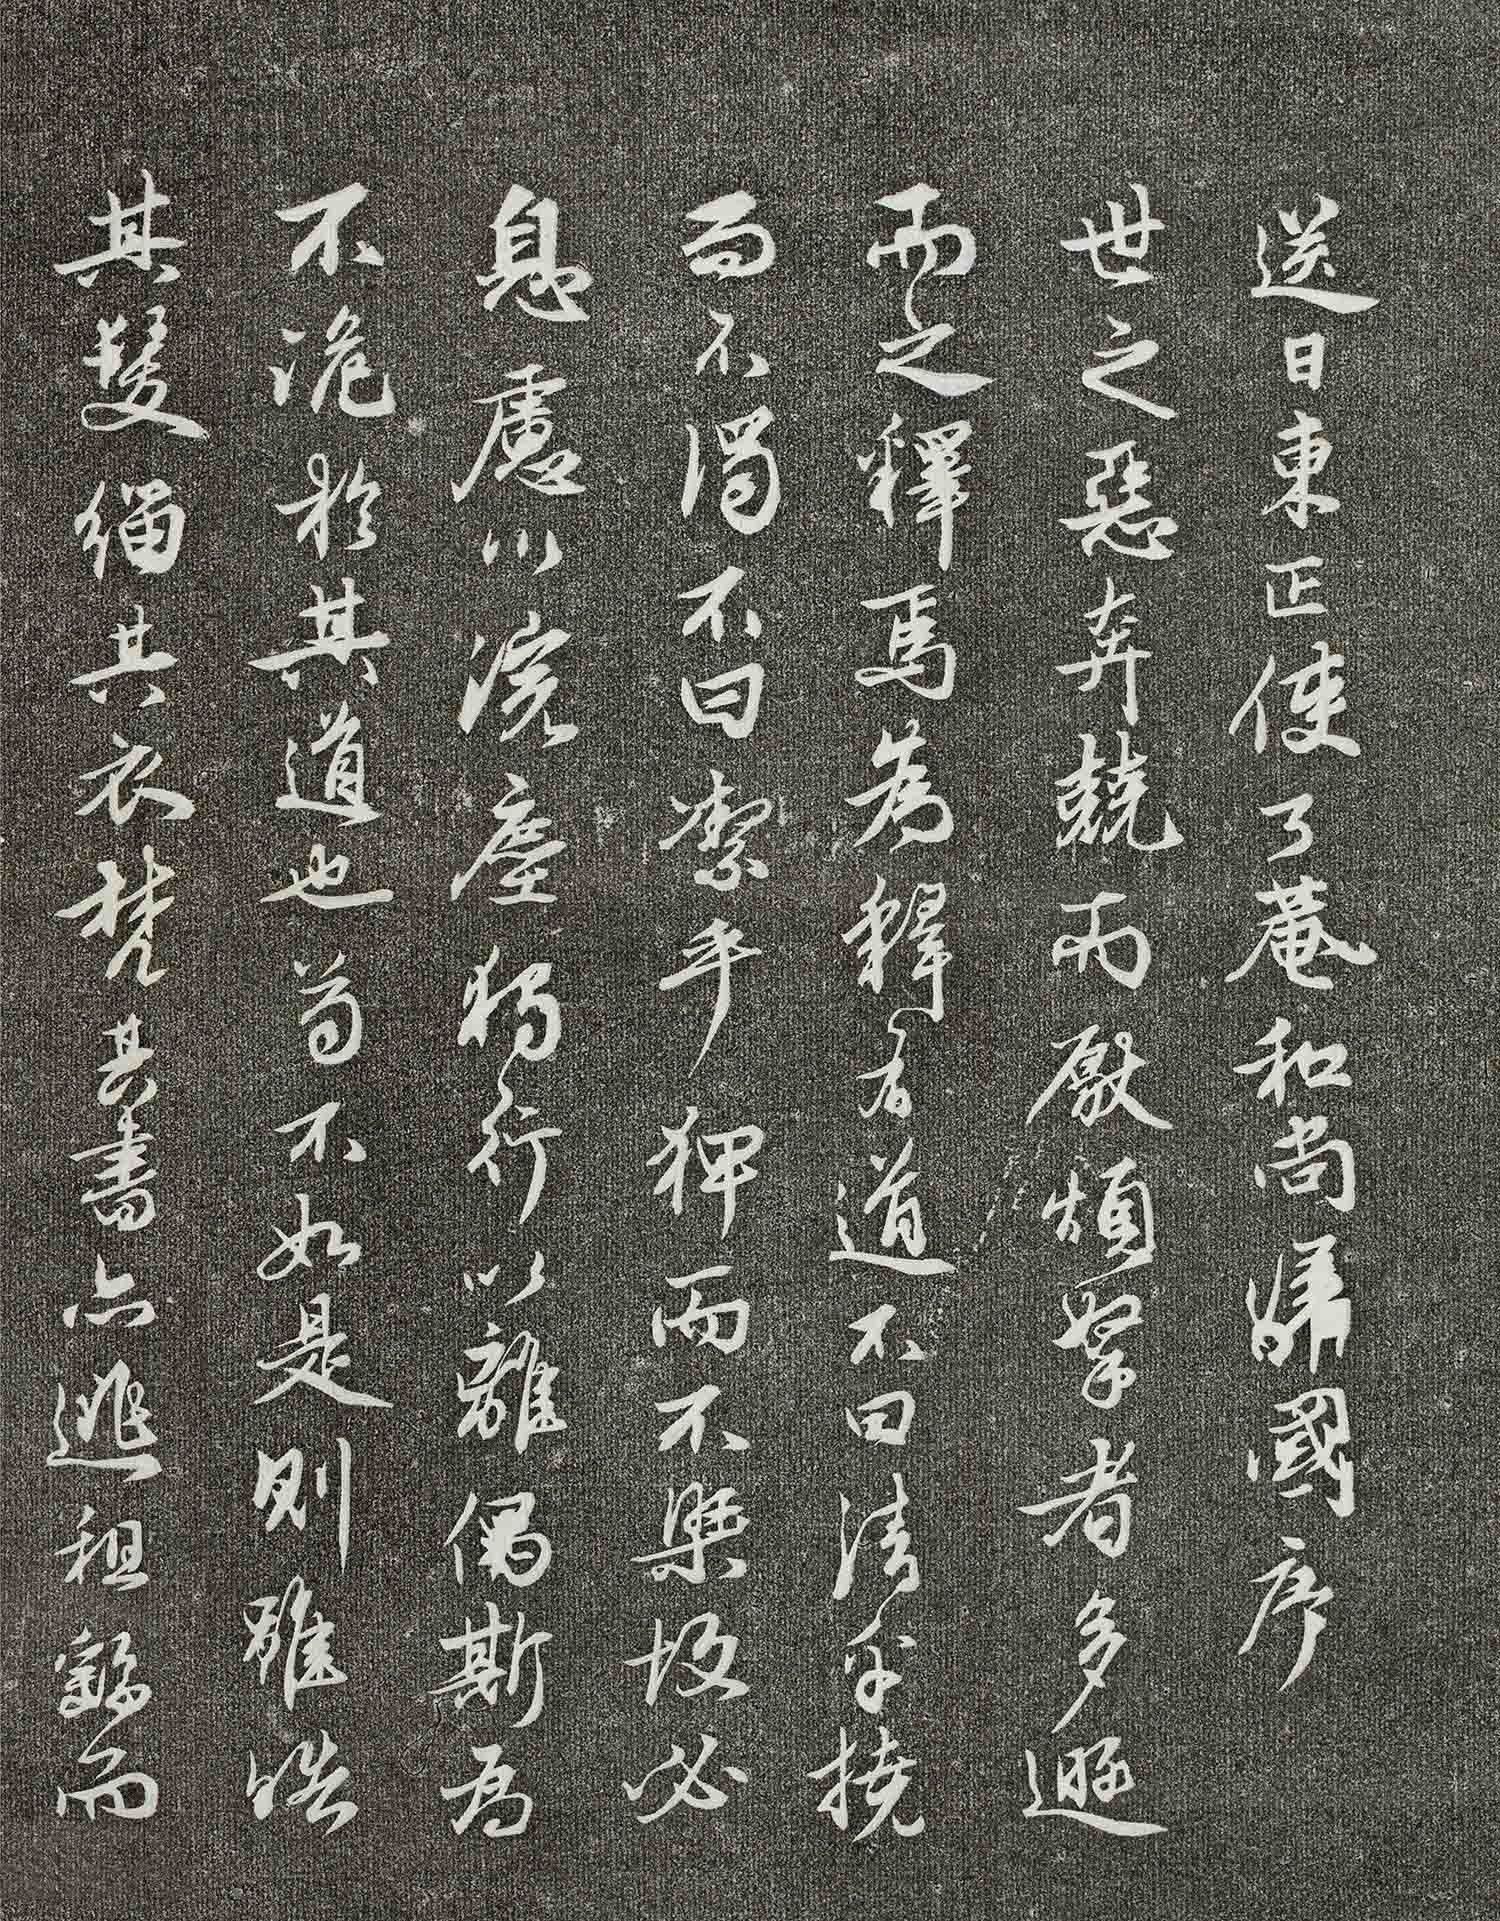 送日東正使了菴和尚歸國序
世之惡奔競而厭煩拏者多遯
而之釋焉為釋有道不曰清乎撓
而不濁不曰潔乎狎而不染故必
息慮以浣塵獨行以離偶斯為
不詭於其道也苟不如是則雖皓
其髮緇其衣梵其書亦逃租繇而